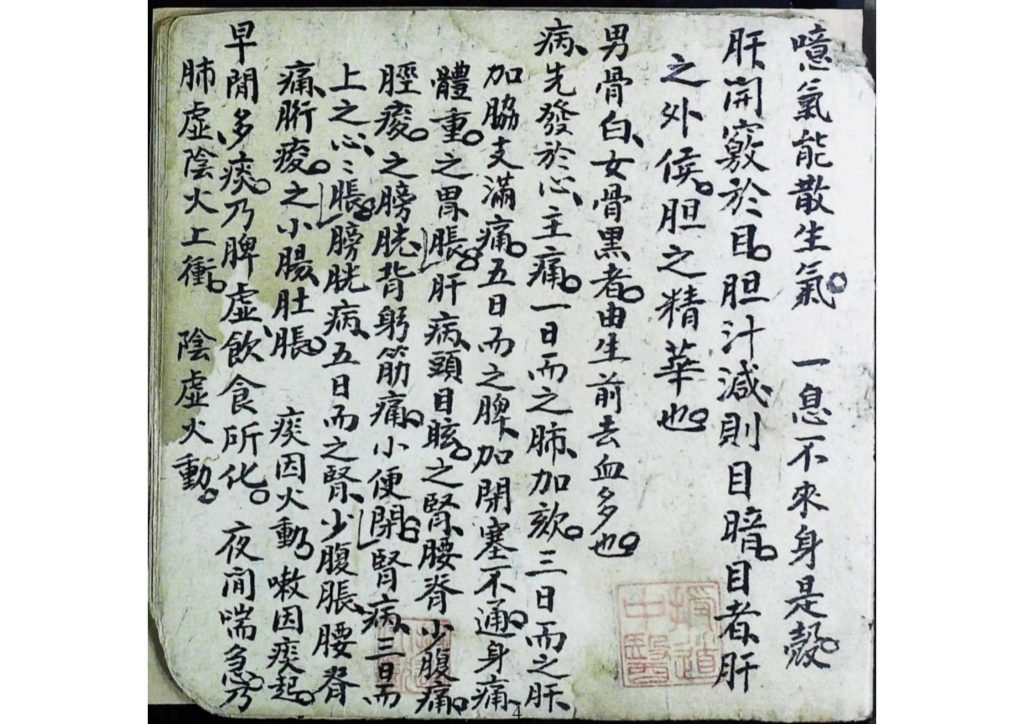 噫氣能散生氣。 一息不來身是殼。
肝開竅於目。胆汁減、則目暗。目者、肝
之外侯。胆之精華也。
男骨白、女骨黑者。由生前去血多也。
病、先發於心、主痛。一日而之肺、加欬。三日而之肝、
加脇支滿痛。五日而之脾、加閉塞不通。身痛、
體重。之胃脹。肝病、頭目眩。之腎、腰脊少腹痛。
脛痠。之膀胱、背躬筋痛。小便閉。腎病、三日而
上之心、〻脹。膀胱病、五日而之腎、少腹脹、腰脊
痛、胻痠。之小腸、肚脹。 痰因火動。嗽因痰起。
早間多痰。乃脾虛、飲食所化。 夜間喘急。乃
肺虛陰火上衝。 陰虛火動。
道
中醫
4